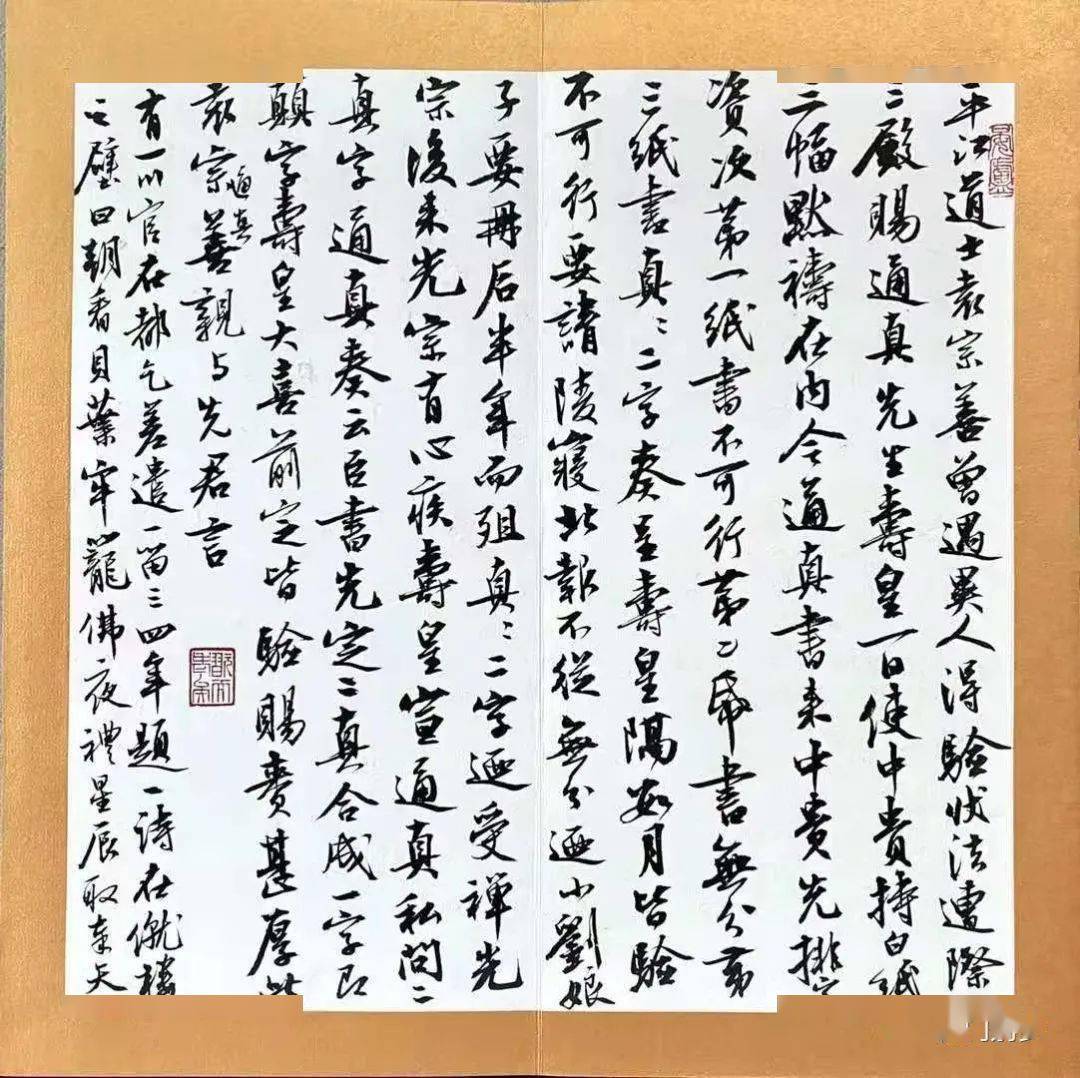 平江道士袁宗善曾遇異人得驗状法遭際
二殿賜通真先生壽皇一日使中貴持白紙
三幅默禱在内令通真書来中貴先排定
資次第一紙書不可行第二帋書無分第
三紙書真々二字奏呈壽皇隔数月皆驗
不可行要請陵寢北報不從無分迺小劉娘
子要冊后半年而殂真々二字迺受禅光
宗後来光宗有心疾壽皇宣通真私問二
真字通真奏云臣書先定二真合成一字即
顛字壽皇大喜前定皆驗賜賚甚厚此
袁宗善親与先君言
通真
有一川官在都乞差遣一留三四年題一詩在僦楼
之壁曰朝看貝葉牢籠佛夜禮星辰取奉天